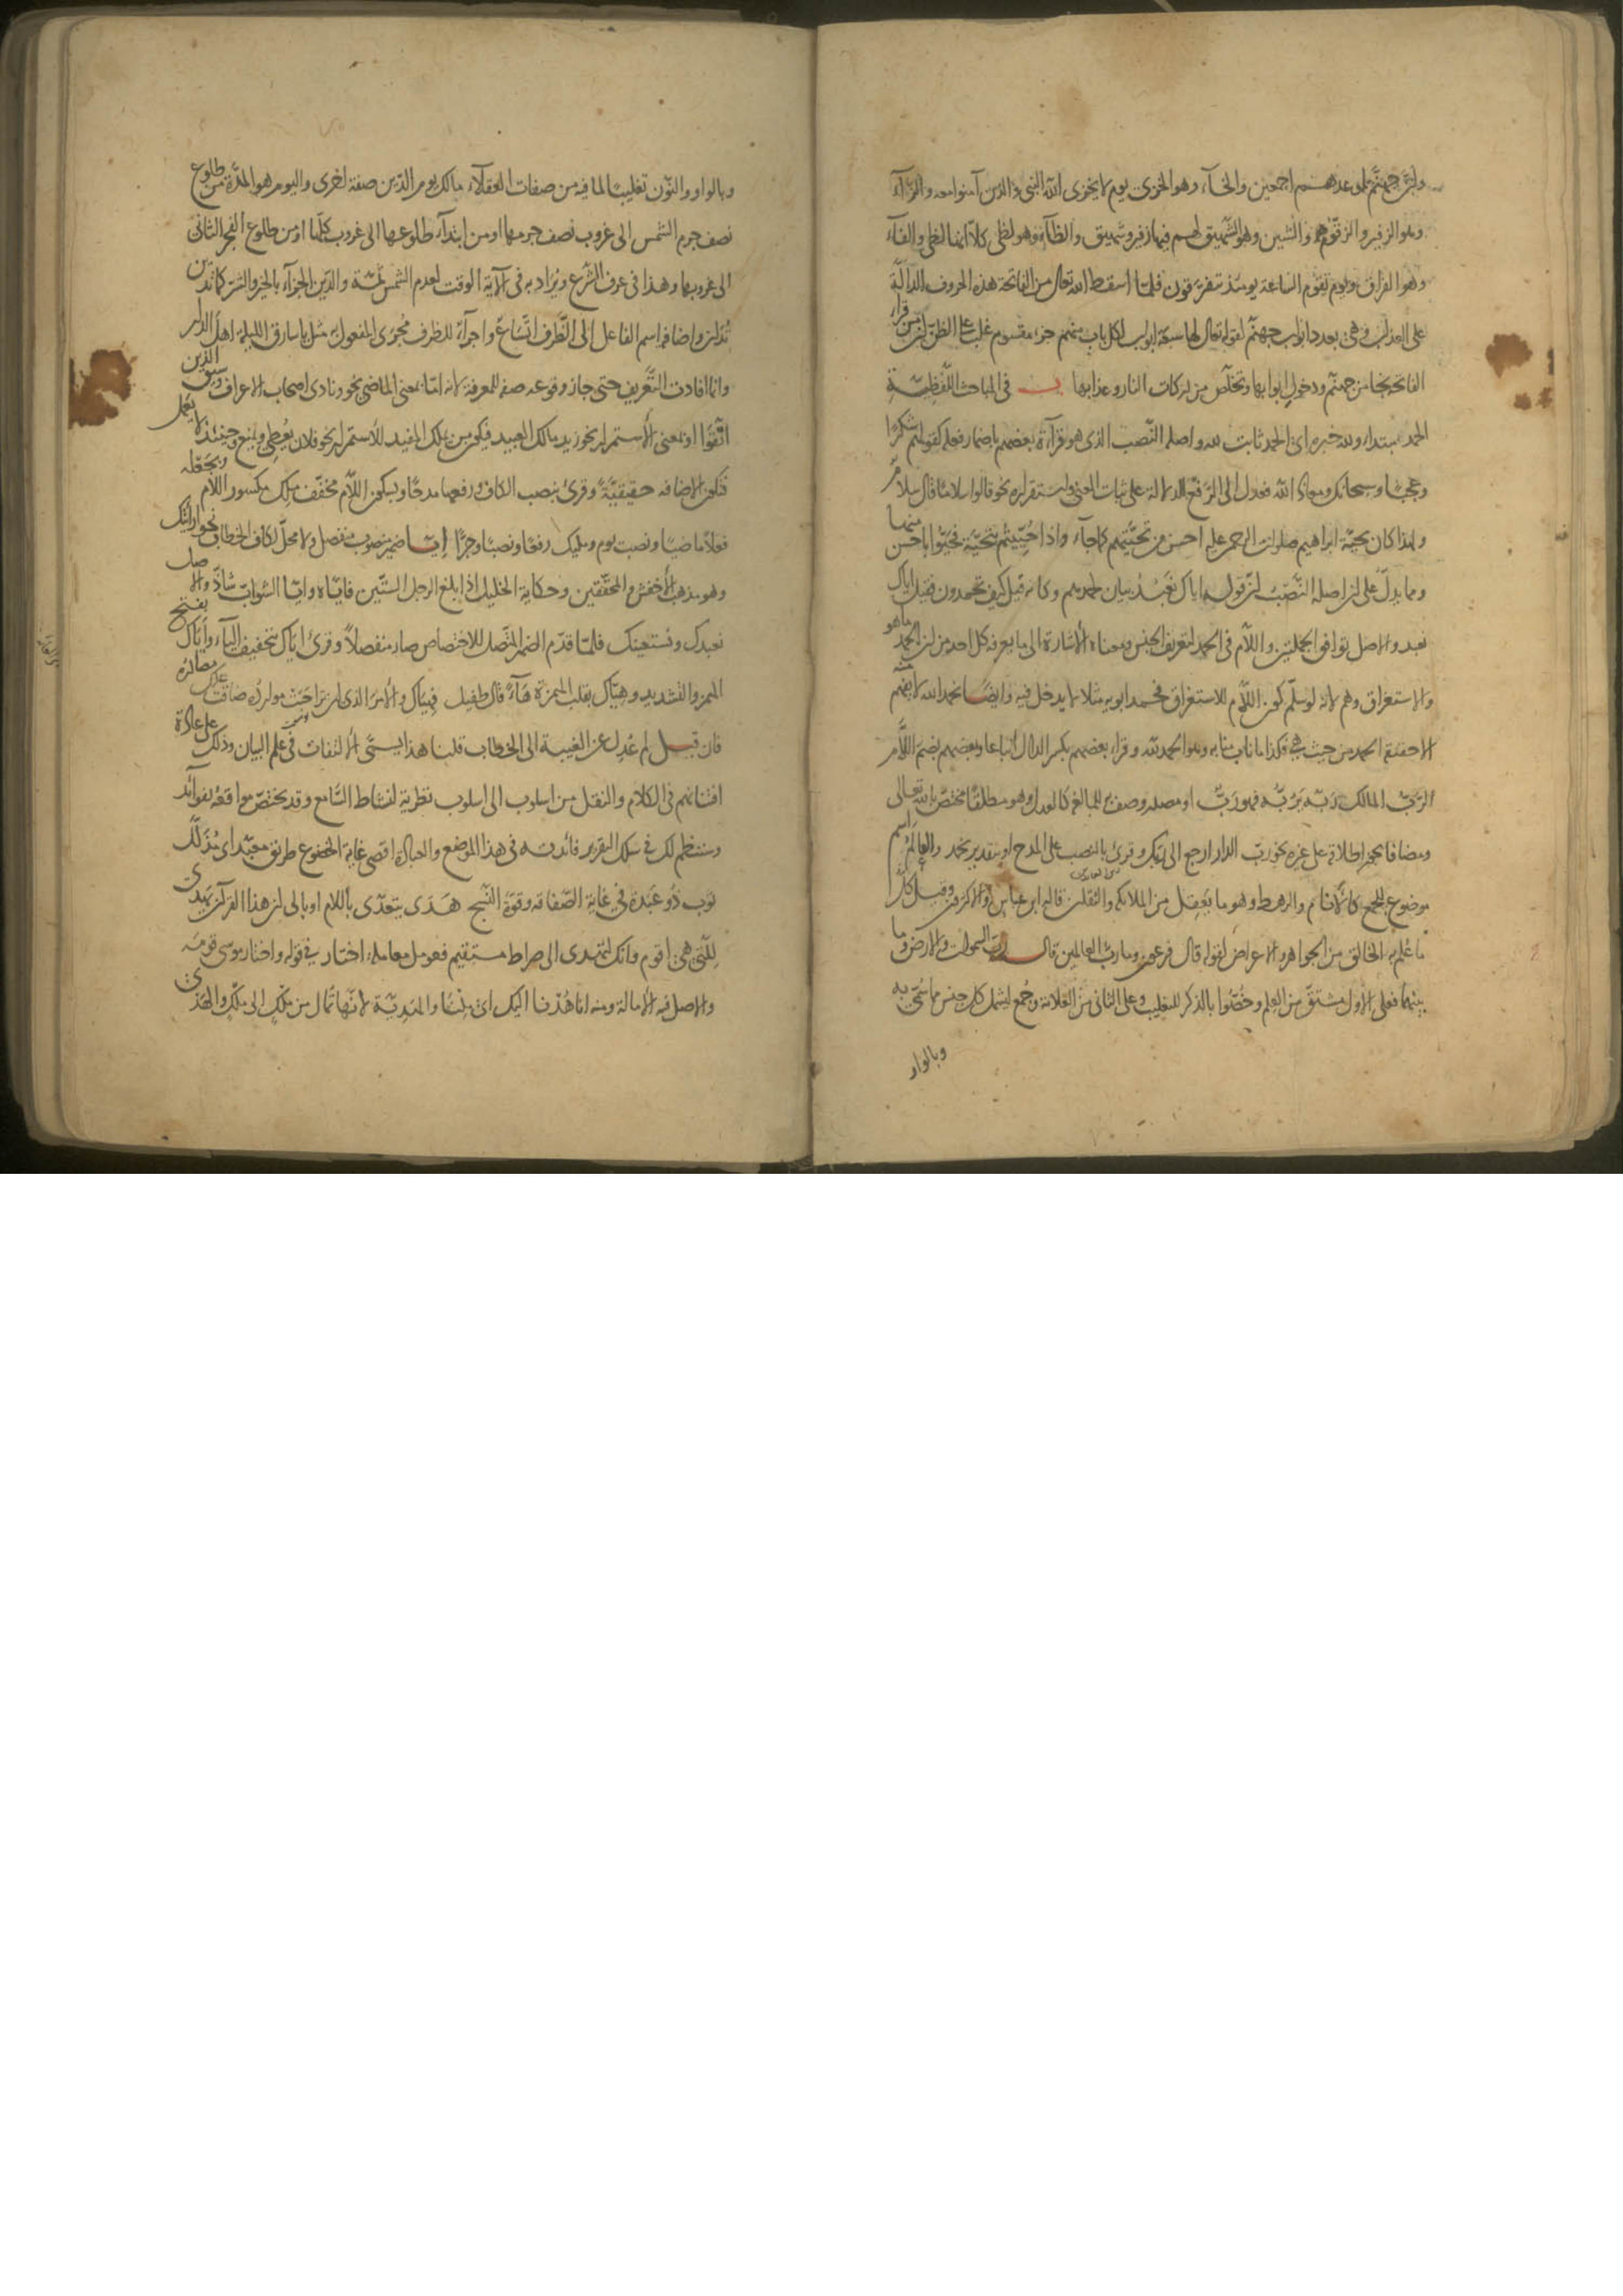 وان جهنم لموعدهم اجمعين والخاء وهو الخزى يوم لا يخزى الله النبى والذين آمنوا معه والزاء
وهو الزفير والزقوم والشين وهو الشهيق لهم فيها زفير وشهيق والظاء وهو لظى كلا انها لظى والفاء
وهو الفراق ويوم تقوم الساعة يومئذ يتفرقون فلما اسقط الله تعالى من الفاتحة هذه الحروف الدالة
على العذاب وهى بعدد ابواب جهنم لقوله تعالى لها سبعة ابواب لكل باب منهم جزء مقسوم غلب على الظن ان من قرأ
الفاتحة نجا من جهنم ودخول ابوابها وتخلص من دركات النار وعذابها فى المباحث اللفظية
الحمد مبتداء ولله خبره اى الحمد ثابت لله واصله النصب الذى هو قرآءة بعضهم باضمار فعله كقولهم شكرًا
وعجبًا وسبحانك ومعاذ الله فعدل الى الرفع للدلالة على ثبات المعنى واستقراره نحو قالوا سلامًا قال سلام
ولهذا كان تحية ابراهيم صلوات الرحمن عليه احسن من تحيتهم كما جاء واذا حييتم بتحية فحيوا باحسن منها
ومما يدل على ان اصله النصب ان قوله اياك نعبد بيان لحمدهم وكانه قيل كيف تحمدون فقيل اياك
نعبد والاصل توافق الجملتين واللام فى الحمد لتعريف الجنس ومعناه الاشارة الى ما يعرفه كل احد من ان الحمد ما هو
والاستغراق وهم لانه لو سلم كون اللام للاستغراق فحمد ابويه مثلا لا يدخل فيه وايضا نحمد الله لا
الا حقيقة الحمد من حيث هى فكذا ما ناب منابه وهو الحمد لله وقراء بعضهم بكسر الدال اتباعا وبعضهم بضم اللام
الرب المالك ربه يربه فهو رب او مصدر وصف به للمبالغة كالعدل وهو مطلقًا مختص بالله تعالى
ومضافا يجوز اطلاقه على غيره نحو رب الدار ارجع الى ربك وقرئ بالنصب على المدح او بتقدير نحمد والعالم اسم
موضوع للجمع كالانام والرهط وهو ما يعقل من الملائكة والثقلين قاله ابن عباس والاكثرون وقيل كل
ما علم به الخالق من الجواهر والاعراض لقوله قال فرعون وما رب العالمين قال رب السموات والارض وما
بينهما فعلى الاول مشتق من العلم وخصوا بالذكر للتغليب وعلى الثانى من العلامة وجمع ليشمل كل جنس مما سمى به
وبالواو
وبالواو والنون تغليبًا لما فيه من صفات العقلاء مالك يوم الدين صفة اخرى واليوم هو المدة من طلوع
نصف جرم الشمس الى غروب نصف جرمها او من ابتداء طلوعها الى غروب كلها او من طلوع الفجر الثانى
الى غروبها وهذا فى عرف الشرع ويراد به فى الآية الوقت لعدم الشمس ثمة والدين الجزآء بالخير والشر كما تدين
تدان واضافة اسم الفاعل الى الظرف اتساع واجرآء للظرف مجرى المفعول به مثل يا سارق الليلة اهل الدار
وانما افادت التعريف حتى جاز وقوعه صفة للمعرفة لانه اما بمعنى الماضى نحو ونادى اصحاب الاعراف وسيق الذين
اتقوا او بمعنى الاستمرار نحو زيد مالك العبيد فيكون من يملك المفيد للاستمرار نحو فلان يعطى ويمنع وحينئذ لا يعمل
فتكون الاضافة حقيقية وقرئ بنصب الكاف ورفعها مدحًا وبسكون اللام مخفف ملك مكسور اللام وبجعله
فعلاً ماضيًا ونصب يوم ومليك رفعًا ونصبًا وجرًا ايّا ضمير منصوب منفصل ولا محل لكاف الخطاب نحو ارايتك
وهو مذهب الاخفش والمحققين وحكاية الخليل اذا بلغ الرجل الستين فاياه وايا الشواب شاذ والاصل
نعبدك ونستعينك فلما قدم الضمير المتصل للاختصاص صار منفصلاً وقرئ اياك بتخفيف الياء واياك بفتح
الهمزة والتشديد وهياك بقلب الهمزة هآءً قال طفيل فهياك والامر الذى ان تراحبت موارده ضاقت عليك مصادره
فان قيل لم عدل عن الغيبة الى الخطاب قلنا هذا يسمى الالتفات فى علم البيان وذلك على عادة
افتنانهم فى الكلام والنقل من اسلوب الى اسلوب تطرية لنشاط السامع وقد يختص مواقعه بفوآئد
وستنظم لك فى سلك التقرير فائدته فى هذا الموضع والعبادة اقصى غاية الخضوع طريق معبد اى مذلل
ثوب ذو عبدة فى غاية الصفاقة وقوة النسج هدى يتعدى باللام او بالى ان هذا القرآن يهدى
للتى هى اقوم وانك لتهدى الى صراط مستقيم فعومل معاملة اختار فى قوله واختار موسى قومه
والاصل فيه الامالة ومنه انا هدنا اليك اى ملنا والهدية لانها تمال من ملك الى ملك والهدى